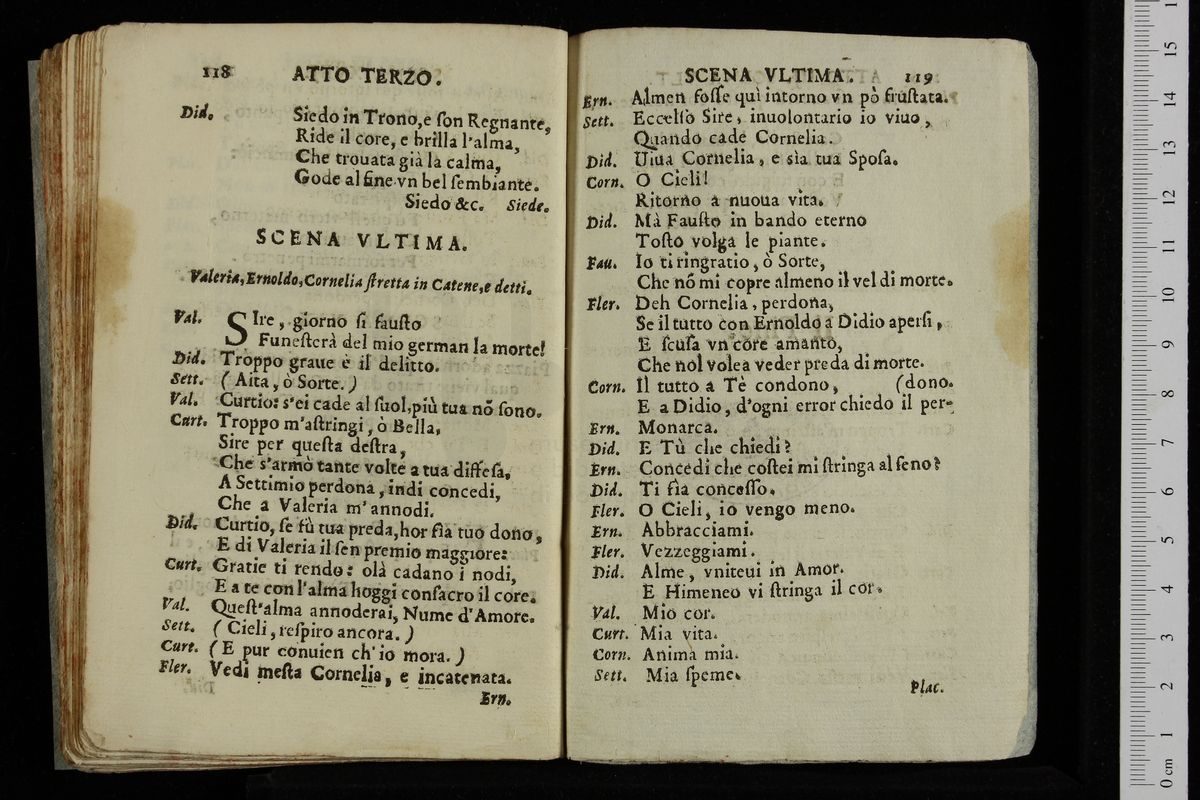 118 ATTO TERZO.
Did. Siedo in Trono, e ſon Regnante,
Ride il core, e brilla l'alma,
Che trouata già la calma,
Gode al fine vn bel ſembiante.
Siedo &c. Siede.
SCENA VLTIMA.
Valeria, Ernoldo, Cornelia ſtretta in Catene, e detti.
Val. SIre, giorno ſi fauſto
Funeſterà del mio german la morte!
Did. Troppo graue è il delitto.
Sett. (Aita, ò Sorte.)
Val. Curtio: s'ei cade al ſuol, più tua nõ ſono.
Curt. Troppo m'aſtringi, ò Bella,
Sire per queſta deſtra,
Che s'armò tante volte a tua diffeſa,
A Settimio perdona, indi concedi,
Che a Valeria m'annodi.
Did. Curtio, ſe fù tua preda, hor ſia tuo dono,
E di Valeria il ſen premio maggiore:
Curt. Gratie ti rendo: olà cadano i nodi,
E a te con l'alma hoggi conſacro il core.
Val. Queſt'alma annoderai, Nume d'Amore.
Sett. (Cieli, reſpiro ancora.)
Curt. (E pur conuien ch'io mora.)
Fler. Vedi meſta Cornelia, e incatenata.
Ern.
SCENA VLTIMA. 119
Ern. Almen foſſe quì intorno vn pò fruſtata.
Sett. Eccelſo Sire, inuolontario io viuo,
Quando cade Cornelia.
Did. Uiua Cornelia, e sìa tua Spoſa.
Corn. O Cieli!
Ritorno a nuoua vita.
Did. Mà Fauſto in bando eterno
Toſto volga le piante.
Fau. Io ti ringratio, ò Sorte,
Che nõ mi copre almeno il vel di morte.
Fler. Deh Cornelia, perdona,
Se il tutto con Ernoldo a Didio aperſi,
E ſcuſa vn core amante,
Che nol volea veder preda di morte.
Corn. Il tutto a Tè condono, (dono.
E a Didio, d'ogni error chiedo il per-
Ern. Monarca.
Did. E Tù che chiedi?
Ern. Concedi che coſtei mi ſtringa al ſeno?
Did. Ti fia conceſſo.
Fler. O Cieli, io vengo meno.
Ern. Abbracciami.
Fler. Vezzeggiami.
Did. Alme, vniteui in Amor.
E Himeneo vi ſtringa il cor.
Val. Mio cor.
Curt. Mia vita.
Corn. Anima mia.
Sett. Mia ſpeme.
Plac.
0 cm 1 2 3 4 5 6 7 8 9 10 11 12 13 14 15